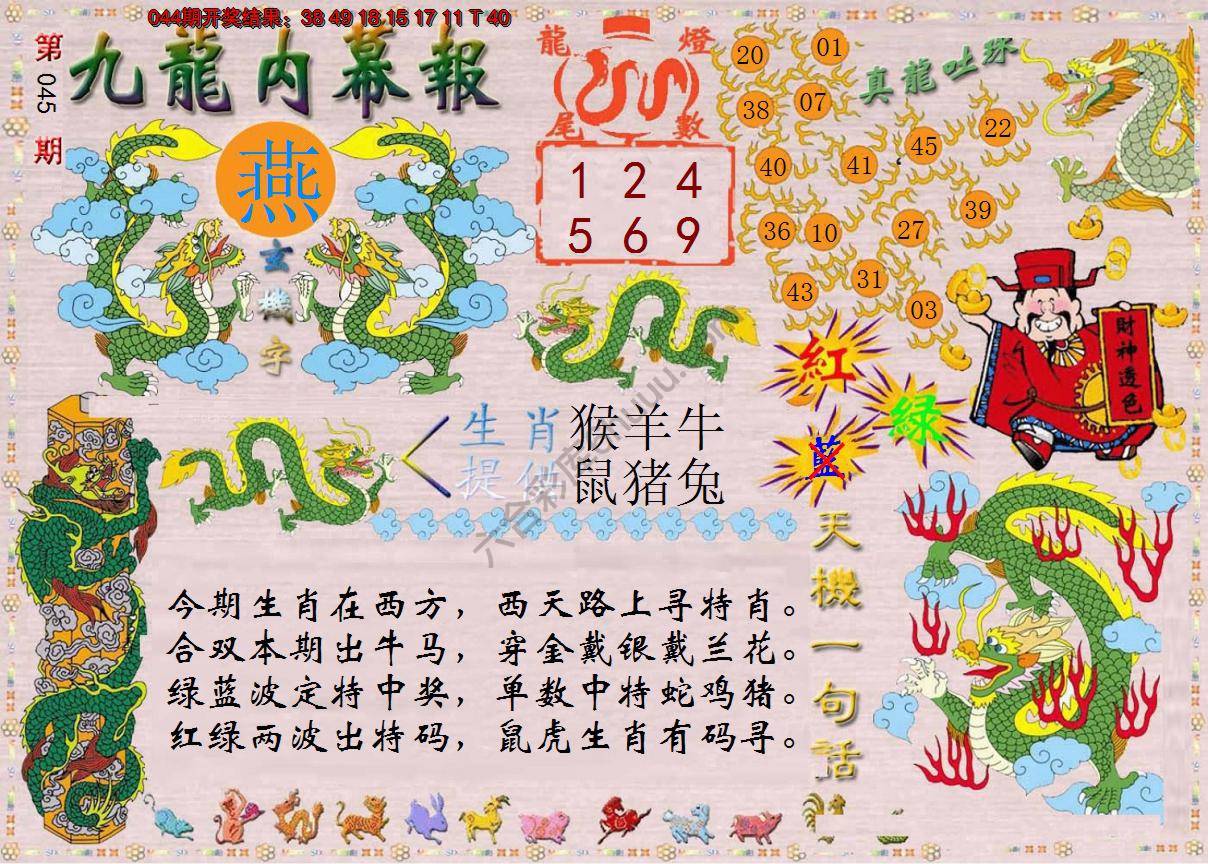 044期开奖结果：38 49 18 15 17 11 T 40
第
045
期
九龍内幕報
燕
玄
機
字
龍 燈
尾 數
1 2 4
5 6 9
真龍吐珠
20 01
38 07
40 41 45 22
36 10 27 39
43 31 03
財神透色
紅
绿
藍
生肖
提供
猴羊牛
鼠猪兔
天機一句話
今期生肖在西方，西天路上寻特肖。
合双本期出牛马，穿金戴银戴兰花。
绿蓝波定特中奖，单数中特蛇鸡猪。
红绿两波出特码，鼠虎生肖有码寻。